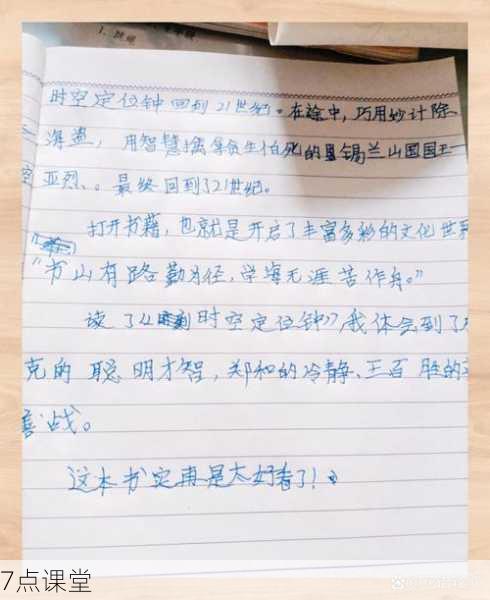 时空定位钟回到21世纪。在途中,巧用妙计除
海盗,用智慧擒拿贪生怕死的锡兰山国国王
亚烈、。最终回到21世纪。
打开书籍,也就是开启了丰富多彩的文化世界
"书山有路勤为径,学海无涯苦作舟。"
读了《时空定位钟》,我体会到了
克的聪明才智,郑和的冷静、王百胜的
善战。
这本书实再是太好看了!
7点课堂